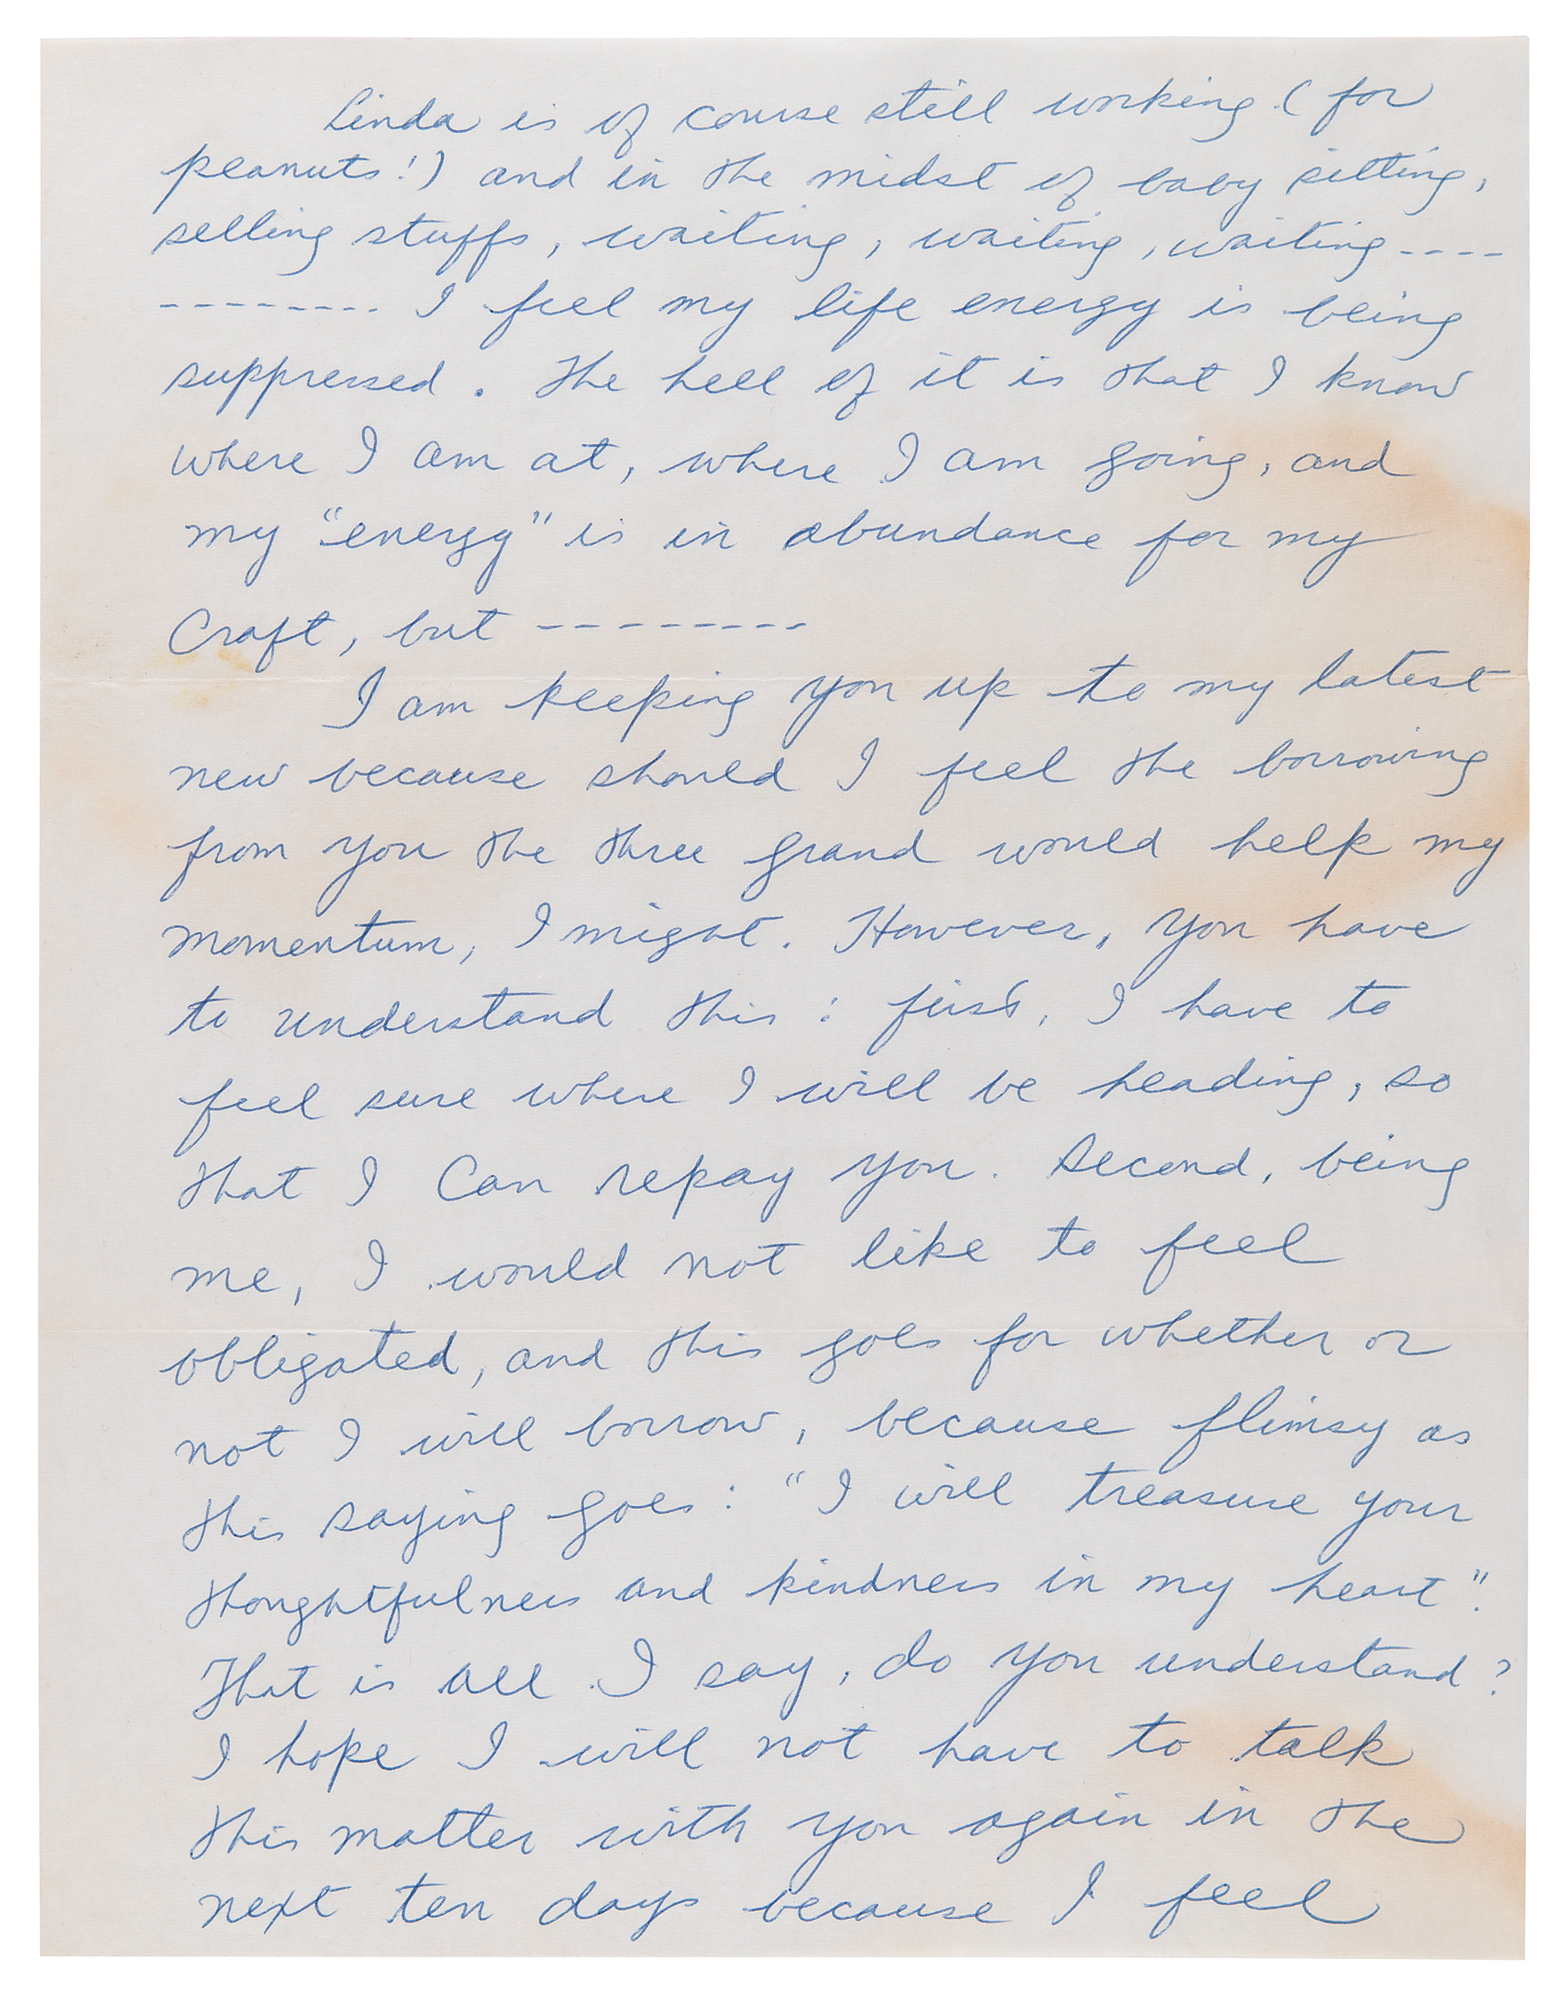 Linda is of course still working (for
peanuts!) and in the midst of baby sitting,
selling stuffs, waiting, waiting, waiting ----
-------- I feel my life energy is being
suppressed. The hell of it is that I know
where I am at, where I am going, and
my "energy" is in abundance for my
Craft, but --------
I am keeping you up to my latest
new because should I feel the borrowing
from you the three grand would help my
momentum, I might. However, you have
to understand this: first, I have to
feel sure where I will be heading, so
that I Can repay you. Second, being
me, I would not like to feel
obligated, and this goes for whether or
not I will borrow, because flimsy as
this saying goes: "I will treasure your
thoughtfulness and kindness in my heart".
That is all I say, do you understand?
I hope I will not have to talk
this matter with you again in the
next ten days because I feel